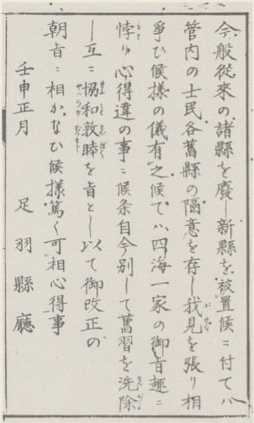 今般従來の諸縣を廢し新縣を被置候ニ付てハ
管内の士民各舊縣の隔意を存し我見を張り相
爭ひ候樣の儀有之候てハ四海一家の御旨趣ニ
悖り心得違の事ニ候条自今別して舊習を洗除
し互ニ協和敦睦を旨とし以て御改正の
朝旨ニ相かなひ候樣篤く可相心得事
壬申正月　足羽縣廳